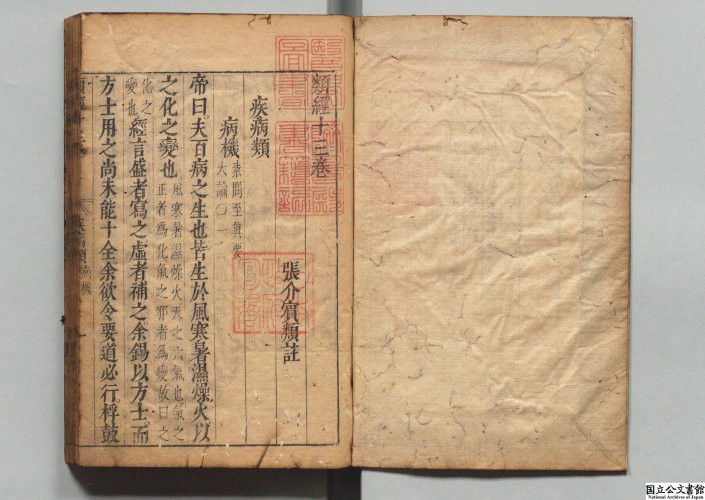 類經十三卷
張介賓類註
疾病類
病機 素問至眞要
大論〇一
帝曰夫百病之生也皆生於風寒暑濕燥火以
之化之變也 風寒暑濕燥火天之六氣也氣之
正者爲化氣之邪者爲變故曰之
化之
變也 經言盛者寫之虛者補之余錫以方士而
方士用之尚未能十全余欲令要道必行桴鼓
疾病類 病機
国立公文書館
National Archives of Japan